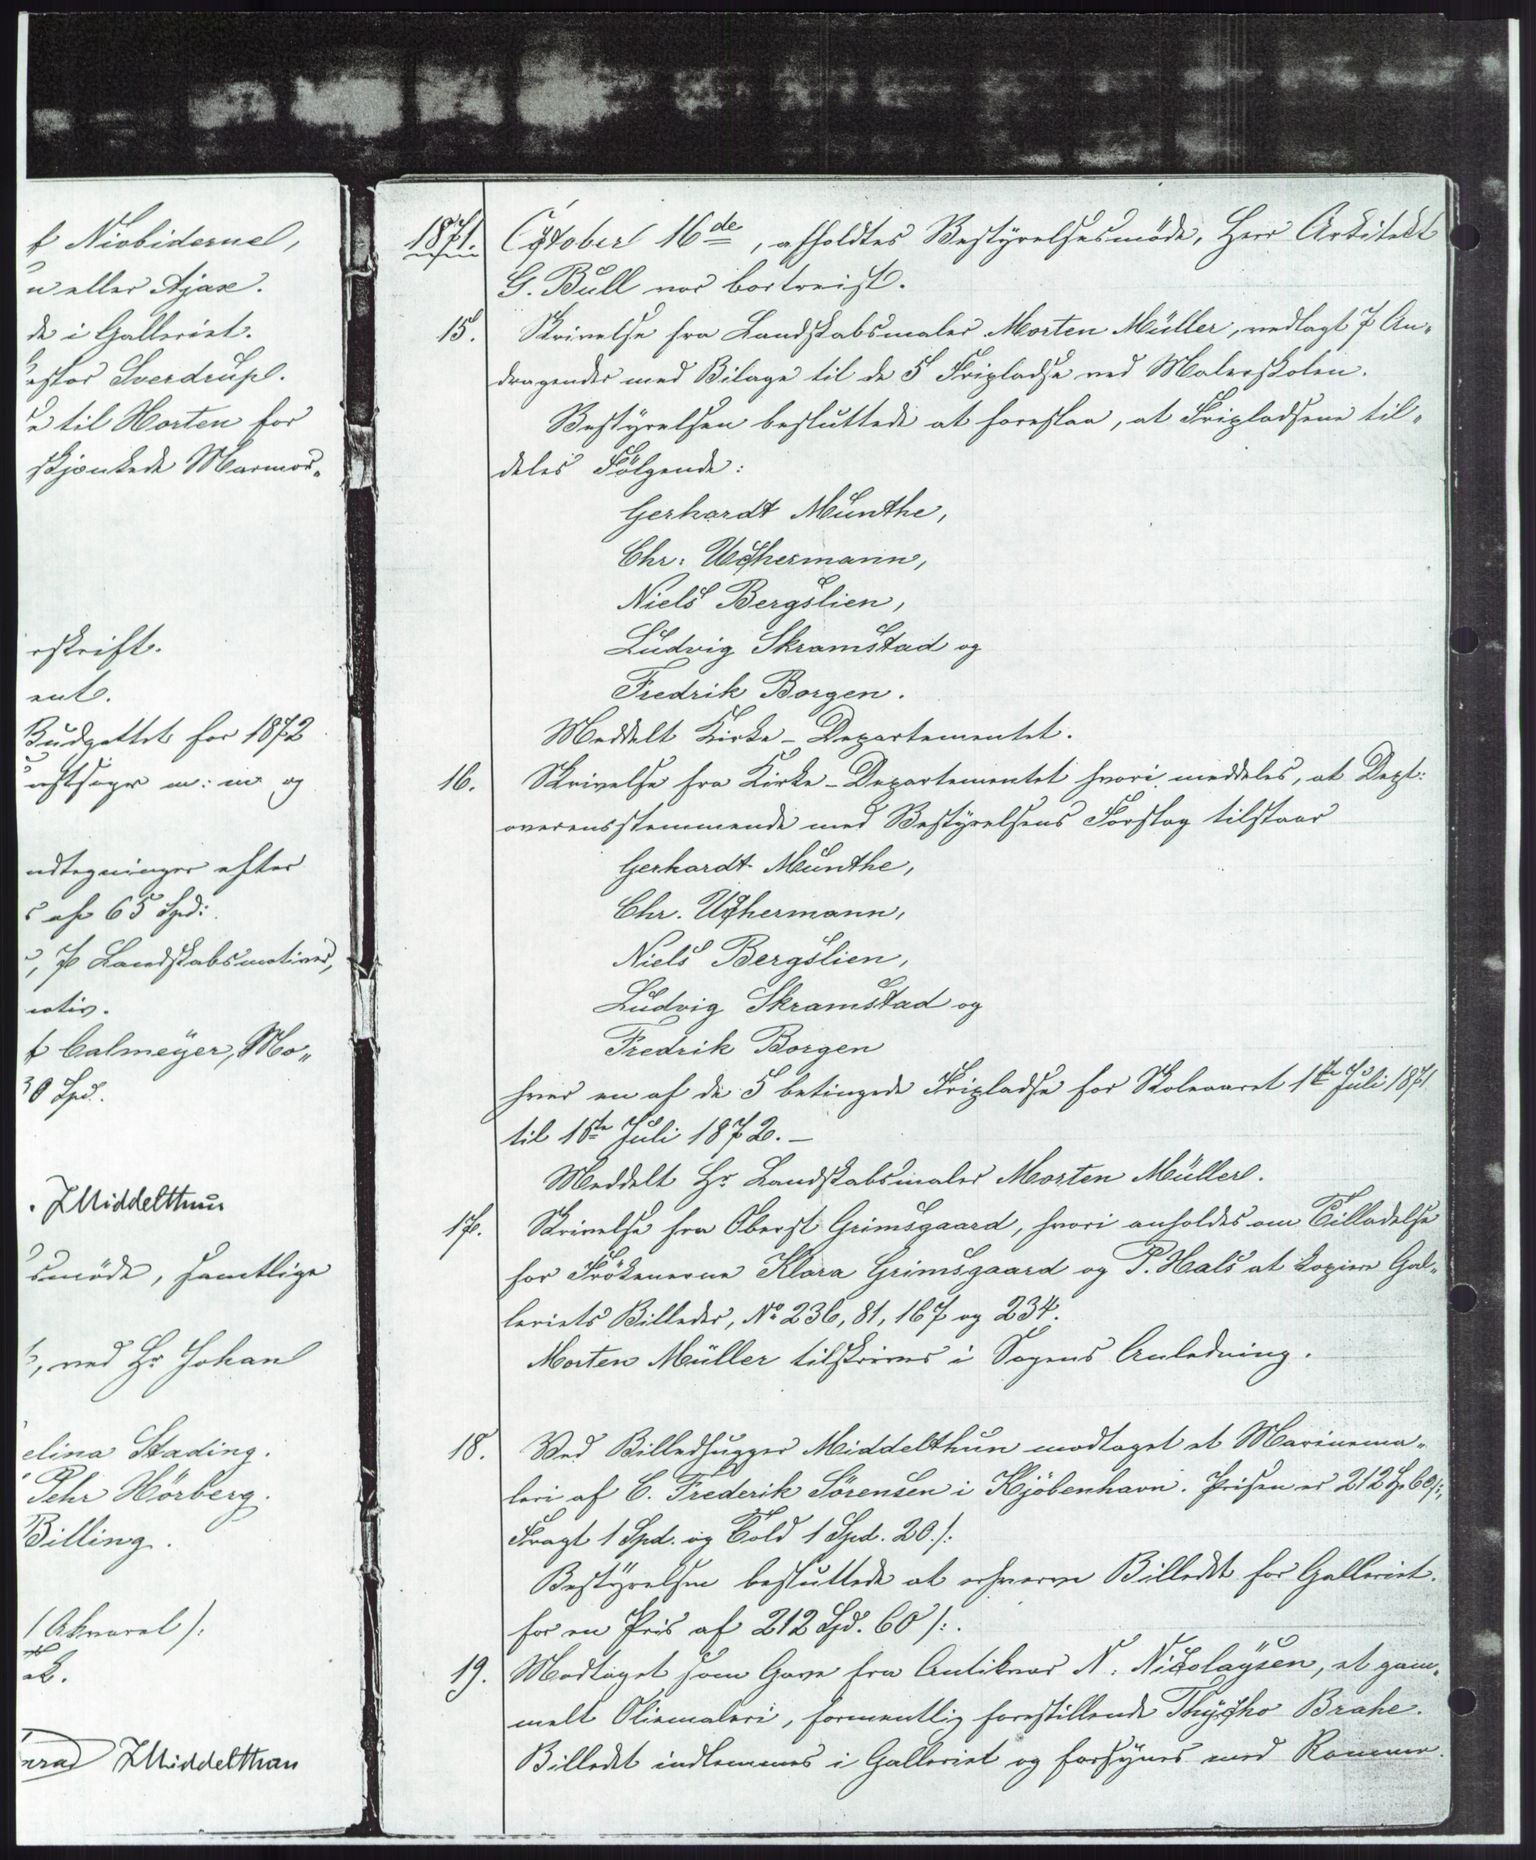 f Niobiderne,
u eller Ajax.
de i Galleriet.
estor Sverdrup.
til Horten for
skjænkede Marmor„
rskrift.
ent.
Budgettet for 1872
m: m og
ndtegninger efter
s af 65 Spd:
, 7 Landskabsmotiver,
otiv.
f Calmeyer, Mo„
30 Spd.
. J Middelthun
smöde, samtlige
, ved Hr Johan
elina Stading.
Pehr Hörberg.
Billing.
/Akvarel/:
nrad J Middelthun
1871. October 16de, afholdtes Bestyrelsesmöde, Herr Arkitekt
G. Bull var bortreist.
15. Skrivelse fra Landskabsmaler Morten Müller, vedlagt 7 An„
dragender med Bilage til de 5 Fripladse ved Malerskolen.
Bestyrelsen besluttede at foreslaa, at Fripladsene til„
deles Følgende:
Gerhardt Munthe,
Chr: Uchermann,
Niels Bergslien,
Ludvig Skramstad og
Fredrik Borgen.
Meddelt Kirke-Departementet.
16. Skrivelse fra Kirke-Departementet hvori meddeles, at Dept:
overensstemmende med Bestyrelsens Forslag tilstaar
Gerhardt Munthe,
Chr. Uchermann,
Niels Bergslien,
Ludvig Skramstad og
Fredrik Borgen
hver en af de 5 betingede Fripladse for Skoleaaret 1te Juli 1871
til 15te Juli 1872.-
Meddelt Hr Landskabsmaler Morten Müller.
17. Skrivelse fra Oberst Grimsgaard, hvori anholdes om Tilladelse
for Frökenerne Klara Grimsgaard og P. Hals at kopiere Gal„
leriets Billeder, No 236, 81, 167 og 234.
Morten Müller tilskrives i Sagens Anledning.
18. Ved Billedhugger Middelthun modtaget et Marinema„
leri af C. Frederik Sörensen i Kjöbenhavn. Prisen er 212 Sp. 60 /:,
Fragt 1 Spd. og Told 1 Spd. 20 /:
Bestyrelsen besluttede at erhverve Billedet for Galleriet.
for en Pris af 212 Spd. 60 /:.
19. Modtaget som Gave fra Antikvar N. Nicolaysen, et gam„
melt Oliemaleri, formentlig forestillende Thycho Brahe.
Billedet indlemmes i Galleriet og forsynes med Ramme.